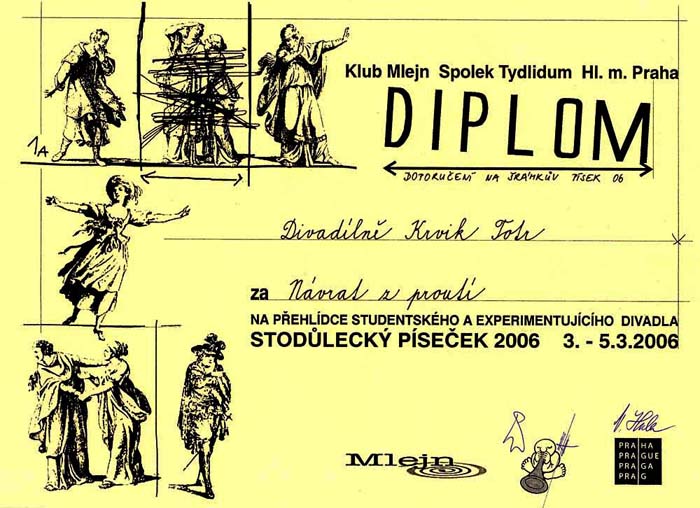 Klub Mlejn Spolek Tydlidum Hl. m. Praha
DIPLOM
DOPORUČENÍ NA ŠRÁMKŮV PÍSEK 06
1A
Divadílně Krvik Totr
za Návrat z proutí
NA PŘEHLÍDCE STUDENTSKÉHO A EXPERIMENTUJÍCÍHO DIVADLA
STODŮLECKÝ PÍSEČEK 2006 3. - 5.3.2006
Mlejn
PRAHA
PRAGUE
PRAGA
PRAG